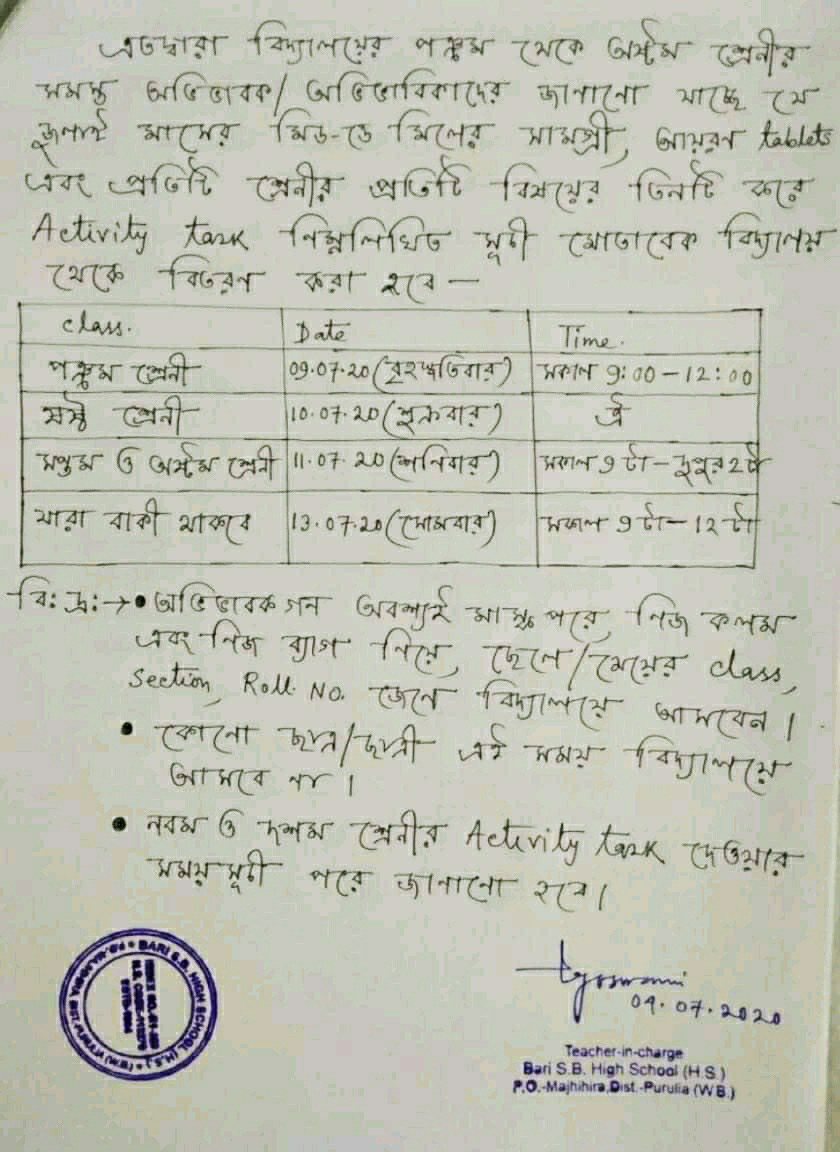 এতদ্বারা বিদ্যালয়ের পঞ্চম থেকে অষ্টম শ্রেনীর
সমস্ত অভিভাবক/ অভিভাবিকাদের জানানো যাচ্ছে যে
জুলাই মাসের মিড-ডে মিলের সামগ্রী, আয়রণ tablets
এবং প্রতিটি শ্রেনীর প্রতিটি বিষয়ের তিনটি করে
Activity task নিম্নলিখিত সূচী মোতাবেক বিদ্যালয়
থেকে বিতরণ করা হবে —
class. Date Time.
পঞ্চম শ্রেনী 09.07.20 (বৃহস্পতিবার) সকাল 9:00 – 12:00
ষষ্ঠ শ্রেনী 10.07.20 (শুক্রবার) ঐ
সপ্তম ও অষ্টম শ্রেনী 11.07.20 (শনিবার) সকাল 9 টা – দুপুর 2 টা
যারা বাকী থাকবে 13.07.20 (সোমবার) সকাল 9 টা – 12 টা
বি: দ্র: → • অভিভাবকগন অবশ্যই মাস্ক পরে, নিজ কলম
এবং নিজ ব্যাগ নিয়ে, ছেলে/মেয়ের class,
Section, Roll. No. জেনে বিদ্যালয়ে আসবেন।
• কোনো ছাত্র/ছাত্রী এই সময় বিদ্যালয়ে
আসবে না।
• নবম ও দশম শ্রেনীর Activity task দেওয়ার
সময়সূচী পরে জানানো হবে।
BARI S.B. HIGH SCHOOL (H.S.)
Goswami
04.07.2020
Teacher-in-charge
Bari S.B. High School (H.S.)
P.O.-Majhihira,Dist.-Purulia (W.B.)